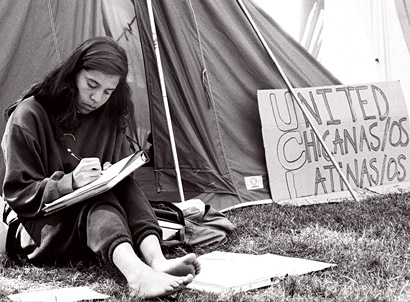 UNITED
CHCANAS/OS
LATINAS/OS